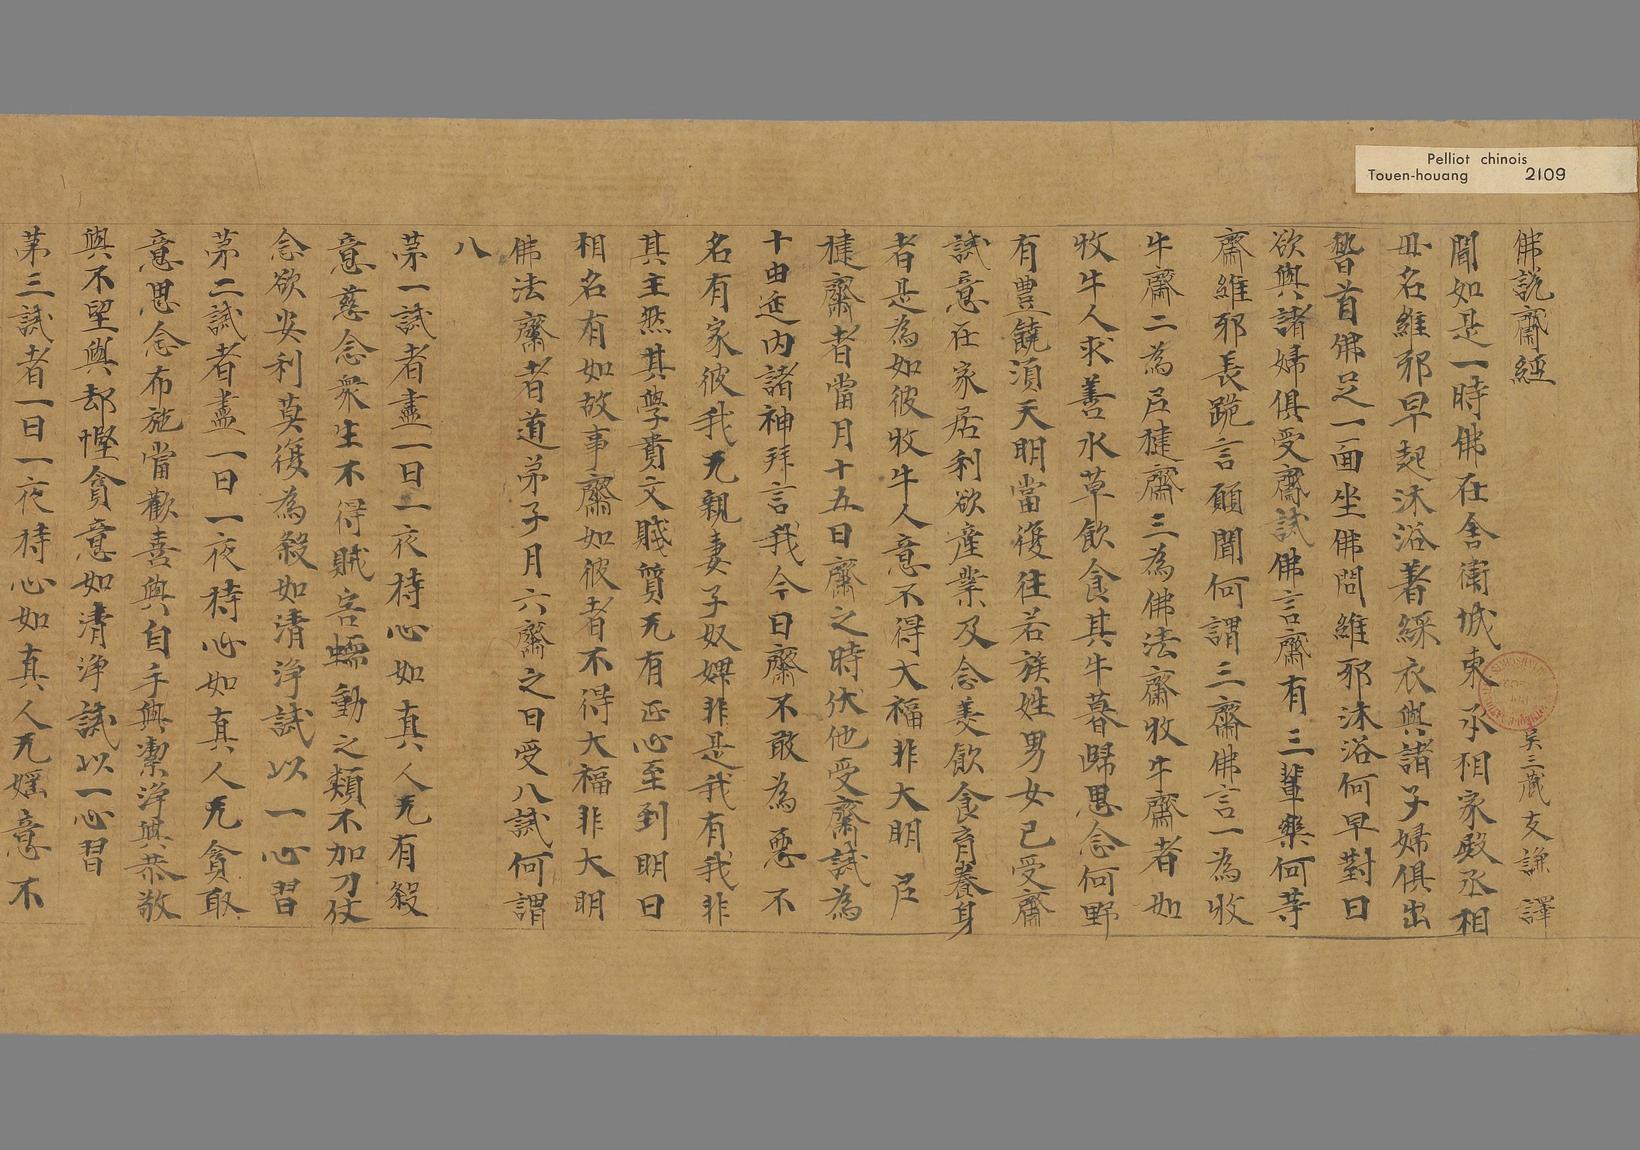 Pelliot chinois
Touen-houang 2109
佛説齋經 吳三藏支謙譯
聞如是一時佛在舍衛城東丞相家殿丞相
母名維耶早起沐浴著綵衣與諸子婦俱出
稽首佛足一面坐佛問維耶沐浴何早對曰
欲與諸婦俱受齋試佛言齋有三輩樂何等
齋維耶長跪言願聞何謂三齋佛言一為牧
牛齋二為尼揵齋三為佛法齋牧牛齋者如
牧牛人求善水草飲食其牛暮歸思念何野
有豊饒湏天明當復往若族姓男女已受齋
試意在家居利欲産業及念美飲食育養身
者是為如彼牧牛人意不得大福非大明 尼
揵齋者當月十五日齋之時伏他受齋試為
十由延內諸神拜言我今日齋不敢為惡不
名有家彼我无親妻子奴婢非是我有我非
其主然其學貴文賤質无有正心至到明日
相名有如故事齋如彼者不得大福非大明
佛法齋者道弟子月六齋之日受八試何謂
八
苐一試者盡一日一夜持心如真人无有殺
意慈念衆生不得賊害蠕動之類不加刀仗
念欲安利莫復為殺如清淨試以一心習
苐二試者盡一日一夜持心如真人无貪取
意思念布施當歡喜與自手與潔淨與恭敬
與不望與却慳貪意如清淨試以一心習
苐三試者一日一夜持心如真人无婬意不